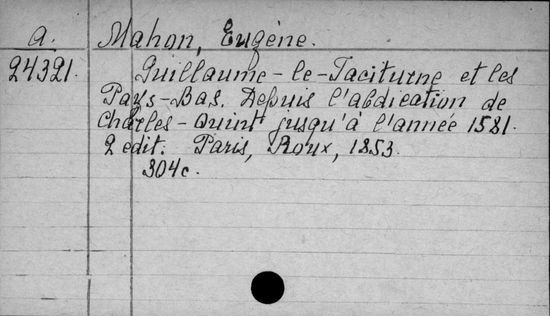 a. Mahon, Eugène.
24321. Guillaume-le-Taciturne et les
Pays-Bas. Depuis l'abdication de
Charles-Quint jusqu'à l'année 1581.
2 edit. Paris, Roux, 1853.
304c.